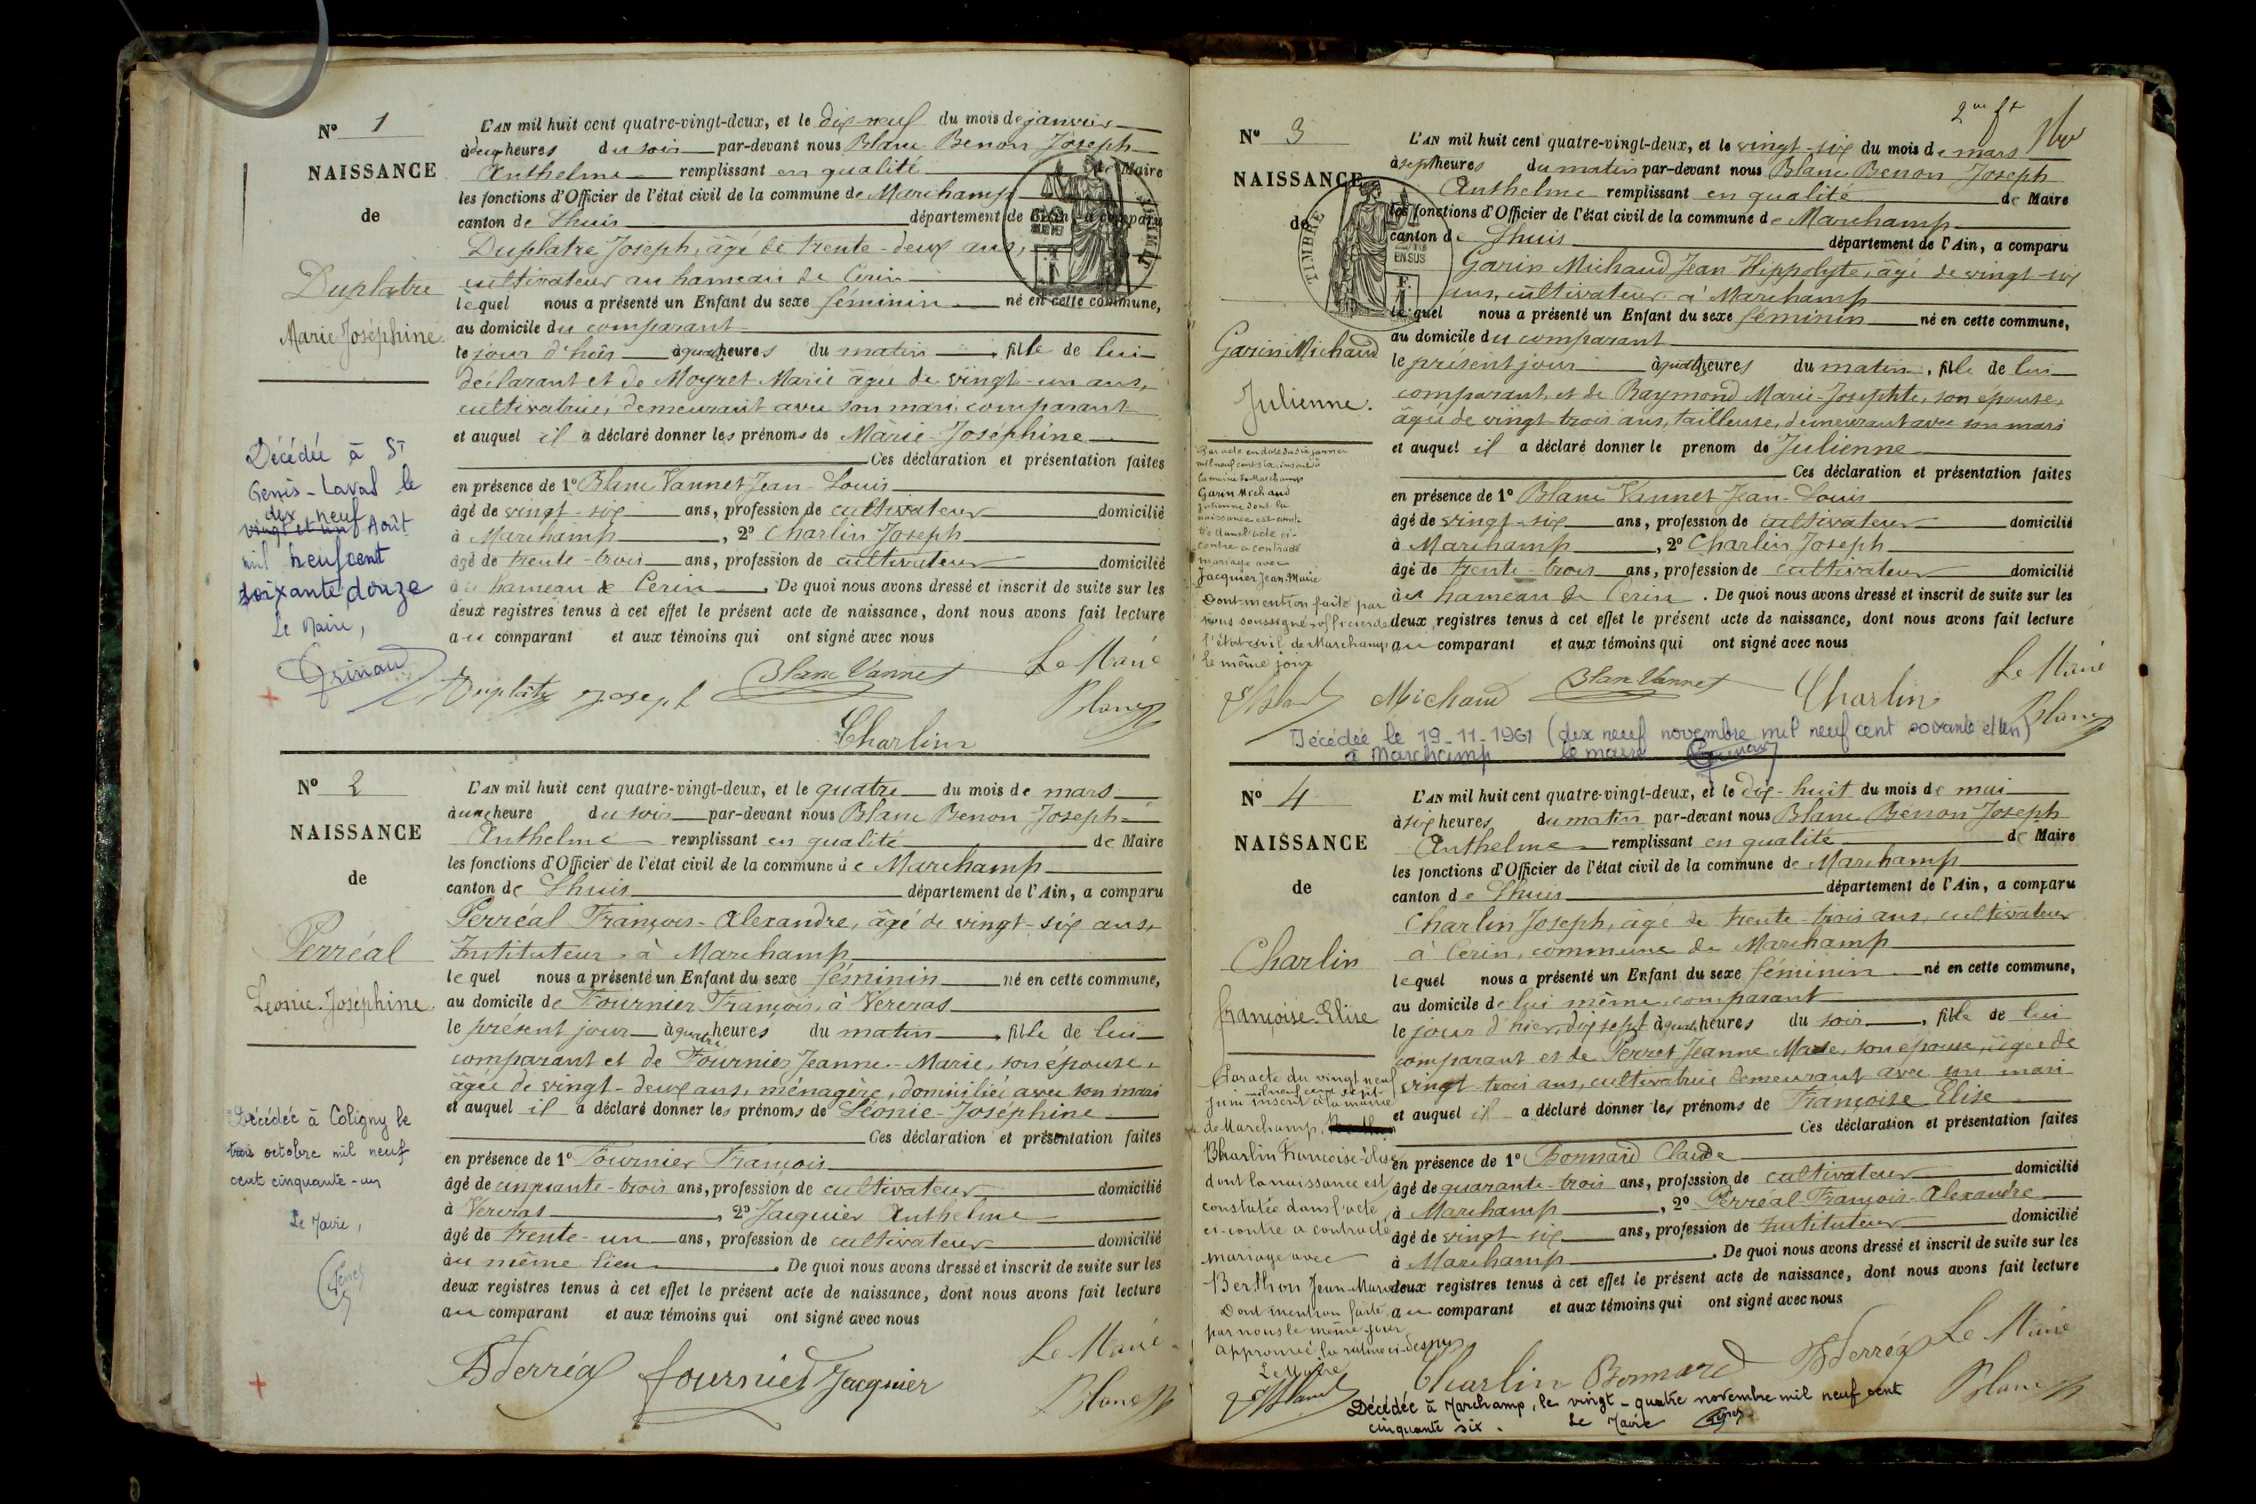 N° 1
NAISSANCE
de
Duplatre
Marie Joséphine
Décédée à St
Genis-Laval le
dix neuf
vingt et un Août
mil neufcent
soixante douze
Le Maire,
L'AN mil huit cent quatre-vingt-deux, et le dix-neuf du mois de janvier
à deux heures du soir par-devant nous Blanc Benon Joseph
Anthelme remplissant en qualité de Maire
les fonctions d'Officier de l'état civil de la commune de Marchamp
canton de Lhuis département de l'Ain, a comparu
Duplatre Joseph, âgé de trente-deux ans,
cultivateur au hameau de Cerin
lequel nous a présenté un Enfant du sexe féminin né en cette commune,
au domicile du comparant
le jour d'hui à quatre heures du matin, fille de lui
déclarant et de Moyret Marie âgée de vingt-un ans,
cultivatrice, demeurant avec son mari comparant
et auquel il a déclaré donner les prénoms de Marie-Joséphine
Ces déclaration et présentation faites
en présence de 1° Blanc Vannet Jean-Louis
âgé de vingt-six ans, profession de cultivateur domicilié
à Marchamp, 2° Charlin Joseph
âgé de trente-trois ans, profession de cultivateur domicilié
au hameau de Cerin. De quoi nous avons dressé et inscrit de suite sur les
deux registres tenus à cet effet le présent acte de naissance, dont nous avons fait lecture
au comparant et aux témoins qui ont signé avec nous
Duplatre Joseph Blanc Vannet Le Maire
Charlin Blanc
N° 2
NAISSANCE
de
Perréal
Léonie-Joséphine
Décédée à Coligny le
trois octobre mil neuf
cent cinquante-un
Le Maire,
L'AN mil huit cent quatre-vingt-deux, et le quatre du mois de mars
à une heure du soir par-devant nous Blanc Benon Joseph
Anthelme remplissant en qualité de Maire
les fonctions d'Officier de l'état civil de la commune de Marchamp
canton de Lhuis département de l'Ain, a comparu
Perréal François-Alexandre, âgé de vingt-six ans,
Instituteur à Marchamp
lequel nous a présenté un Enfant du sexe féminin né en cette commune,
au domicile de Fournier François, à Vereras
le présent jour à quatre heures du matin, fille de lui
comparant et de Fournier Jeanne-Marie, son épouse,
âgée de vingt-deux ans, ménagère, domiciliée avec son mari
et auquel il a déclaré donner les prénoms de Léonie-Joséphine
Ces déclaration et présentation faites
en présence de 1° Fournier François
âgé de cinquante-trois ans, profession de cultivateur domicilié
à Vereras, 2° Jacquier Anthelme
âgé de trente-un ans, profession de cultivateur domicilié
au même lieu. De quoi nous avons dressé et inscrit de suite sur les
deux registres tenus à cet effet le présent acte de naissance, dont nous avons fait lecture
au comparant et aux témoins qui ont signé avec nous
Perréal Fournier Jacquier Le Maire
Blanc
N° 3
NAISSANCE
de
TIMBRE
EN SUS
Garin Michaud
Julienne.
mairie de Marchamp
Garin Michaud
Julienne dont la
naissance est consta
tée dans l'acte ci-
contre a contracté
mariage avec
Jacquier Jean-Marie
Dont mention faite par
nous soussigné officier de
l'état civil de Marchamp
le même jour
L'AN mil huit cent quatre-vingt-deux, et le vingt-six du mois de mars
à sept heures du matin par-devant nous Blanc Benon Joseph
Anthelme remplissant en qualité de Maire
les fonctions d'Officier de l'état civil de la commune de Marchamp
canton de Lhuis département de l'Ain, a comparu
Garin Michaud Jean Hippolyte, âgé de vingt-six
ans, cultivateur à Marchamp
lequel nous a présenté un Enfant du sexe féminin né en cette commune,
au domicile du comparant
le présent jour à quatre heures du matin, fille de lui
comparant et de Raymond Marie-Josephte, son épouse,
âgée de vingt-trois ans, tailleuse, demeurant avec son mari
et auquel il a déclaré donner le prenom de Julienne
Ces déclaration et présentation faites
en présence de 1° Blanc Vannet Jean-Louis
âgé de vingt-six ans, profession de cultivateur domicilié
à Marchamp, 2° Charlin Joseph
âgé de trente-trois ans, profession de cultivateur domicilié
au hameau de Cerin. De quoi nous avons dressé et inscrit de suite sur les
deux registres tenus à cet effet le présent acte de naissance, dont nous avons fait lecture
au comparant et aux témoins qui ont signé avec nous
Michaud Blanc Vannet Charlin Le Maire
Blanc
Décédée le 19-11-1961 (dix neuf novembre mil neuf cent soixante et un)
à Marchamp le maire
N° 4
NAISSANCE
de
Charlin
Françoise-Elise
Par acte du vingt neuf
juin mil neuf cent
inscrit à la mairie
de Marchamp,
Charlin Françoise-Elise
dont la naissance est
constatée dans l'acte
ci-contre a contracté
mariage avec
Berthon Jean-Marie
Dont mention faite
par nous le même jour
approuvé la rature ci-dessus
Le Maire
L'AN mil huit cent quatre-vingt-deux, et le dix-huit du mois de mai
à six heures du matin par-devant nous Blanc Benon Joseph
Anthelme remplissant en qualité de Maire
les fonctions d'Officier de l'état civil de la commune de Marchamp
canton de Lhuis département de l'Ain, a comparu
Charlin Joseph, âgé de trente-trois ans, cultivateur
à Cerin, commune de Marchamp
lequel nous a présenté un Enfant du sexe féminin né en cette commune,
au domicile de lui même comparant
le jour d'hier, dix sept à quatre heures du soir, fille de lui
comparant et de Perret Jeanne Marie, son épouse, âgée de
vingt-trois ans, cultivatrice demeurant avec son mari
et auquel il a déclaré donner les prénoms de Françoise Elise
Ces déclaration et présentation faites
en présence de 1° Bonnard Claude
âgé de quarante-trois ans, profession de cultivateur domicilié
à Marchamp, 2° Perréal François-Alexandre
âgé de vingt-six ans, profession de Instituteur domicilié
à Marchamp. De quoi nous avons dressé et inscrit de suite sur les
deux registres tenus à cet effet le présent acte de naissance, dont nous avons fait lecture
au comparant et aux témoins qui ont signé avec nous
Charlin Bonnard Perréal Le Maire
Blanc
Décédée à Marchamp, le vingt-quatre novembre mil neuf cent
cinquante six. Le Maire